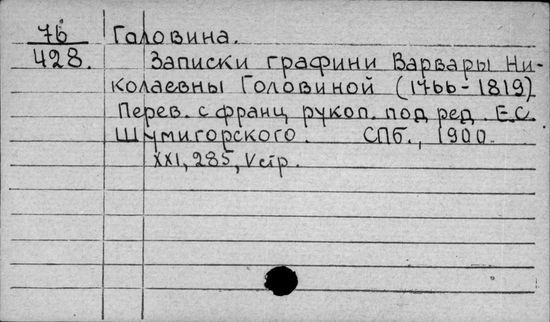 76 Головина.
428. Записки графини Варвары Ни-
колаевны Головиной (1766-1819)
Перев. с франц рукоп. под ред. Е.С.
Шумигорского. СПб., 1900.
XXI, 285, V стр.